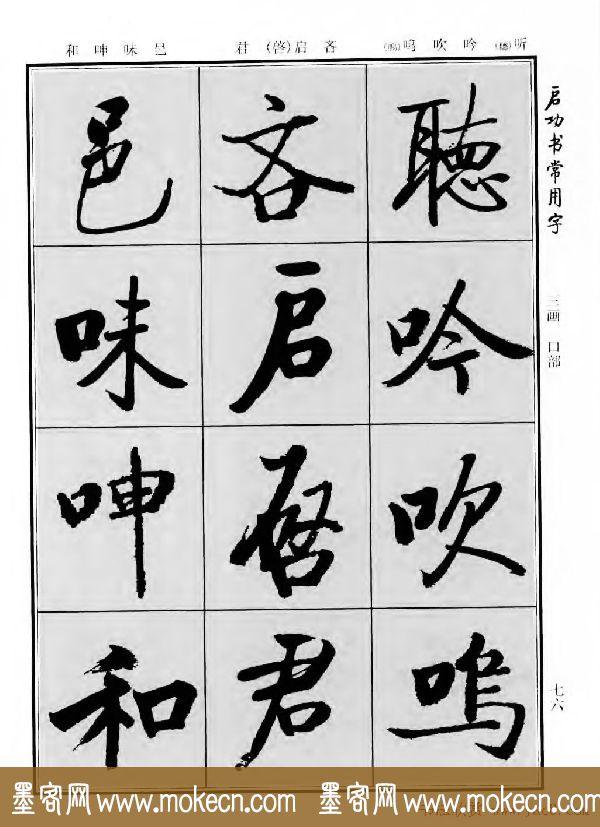 听(聽)吟吹呜(嗚)
吝启(啓)君
邑味呻和
启功书常用字
三画 口部
七六
聽
吟
吹
嗚
吝
启
啓
君
邑
味
呻
和
墨客网 www.mokecn.com 墨客网 www.mokecn.com